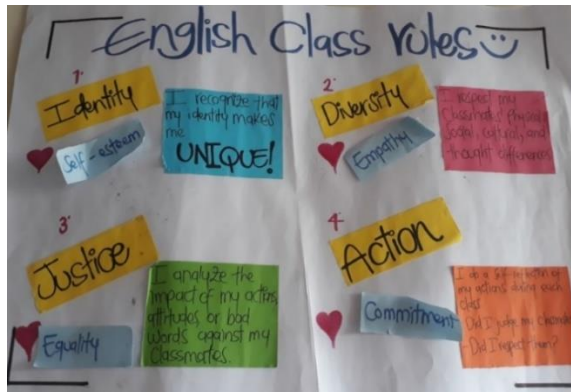 English Class rules
1.
Identity
Self-esteem
I recognize that
my identity makes
me
UNIQUE!
2.
Diversity
Empathy
I respect my
classmates physical
social, cultural, and
thought differences
3.
Justice
Equality
I analyze the
impact of my actions,
attitudes or bad
words against my
classmates.
4.
Action
Commitment
I do a self-reflection of
my actions during each
class
Did I judge my
Did I respect